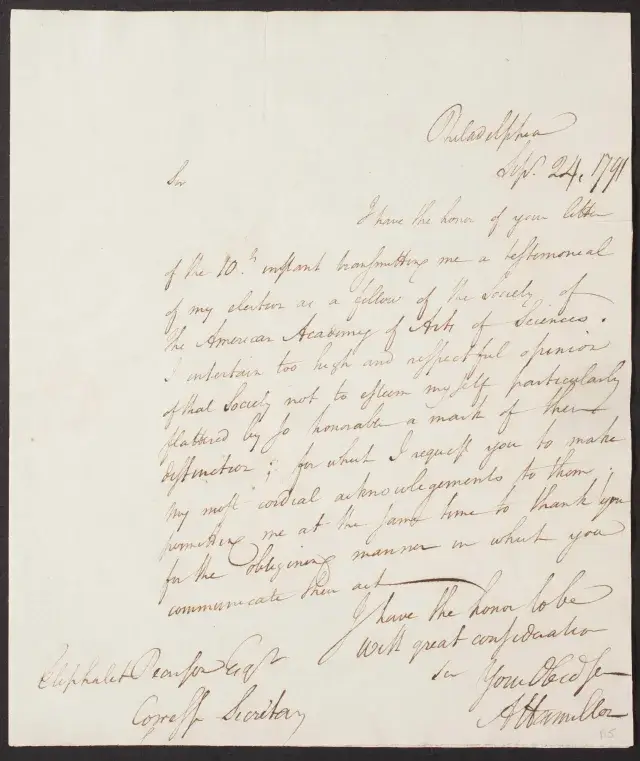 Philadelphia
Sepr. 24, 1791
Sir
I have the honor of your letter
of the 10.th instant transmitting me a testimonial
of my election as a fellow of the Society of
the American Academy of Arts & Sciences.
I entertain too high and respectful opinion
of that Society not to esteem myself particularly
flattered by so honorable a mark of their
distinction; for which I request you to make
my most cordial acknowlegements to them;
permitting me at the same time to thank you
for the obliging manner in which you
communicate their act
I have the honor to be
with great consideration
Sir Your Obed Ser
A Hamilton
Eliphalet Pearson Esqr
Corresp Secretary